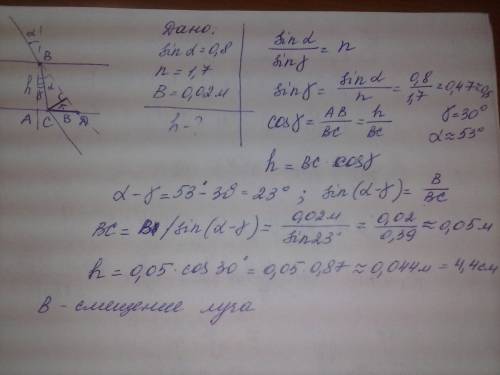 Дано:
sin α = 0,8
n = 1,7
B = 0,02 м
h - ?
α
B
h
γ
α
A C B D
sin α / sin γ = n
sin γ = sin α / n = 0,8 / 1,7 = 0,47 ≈ 0,5
cos γ = AB / BC = h / BC
γ = 30°
α ≈ 53°
h = BC · cos γ
α - γ = 53° - 30° = 23° ; sin(α - γ) = B / BC
BC = B / sin(α - γ) = 0,02 м / sin 23° = 0,02 / 0,39 ≈ 0,05 м
h = 0,05 · cos 30° = 0,05 · 0,87 ≈ 0,044 м = 4,4 см
B - смещение луча